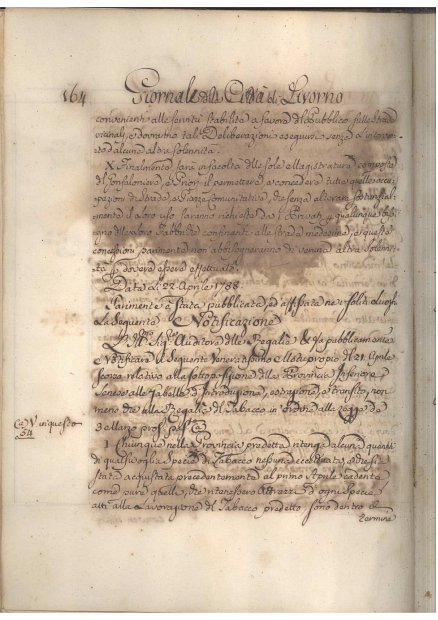 164 Giornale della Città di Livorno
convenienti alle servitù stabilite a favore del Pubblico sulle strade
vicinali, e dovranno tali Deliberazioni eseguirsi senza
d'alcuna altra solennità.
X. Finalmente sarà in facoltà delle sole Magistrature composte
di Gonfaloniere, e Priori il permettere, e concedere tutte quelle occu-
pazioni di strade, e Piazze comunitative, che senza
mente il loro uso saranno richieste da i Privati p qualunque
delle loro Fabbriche confinenti alle strade medesime, e queste
concessioni parimente non abbisogneranno di veruna altra solenni-
tà p dovere essere effettuate.
Data li 22 Aprile 1788
Parimente è stata pubblicata, ed affissa ne i soliti luoghi
La seguente Notificazione
Auditore delle Regalie &c. fa pubblicamente
Notificare il seguente Venerat.mo Motuproprio de 21 Aprile
relativo alla sottoposizione della Provincia Inferiore
Senese alle Gabelle d'Introduzione, estrazione, e transito, non
meno che alla Regalia del Tabacco in ordine alla Legge de
3 Marzo
Ca V in questo
54
1 Chiunque nella Provincia predetta ritenga alcuna quantità
di qualsivoglia Specie di Tabacco nessuna eccettuata, o che sia
stata acquistata precedentemente al primo Aprile cadente
come pure quelli, che ritenessero Attrazzi d'ogni Specie
atti alla Lavorazione del Tabacco predetto, sono dentro il
termine